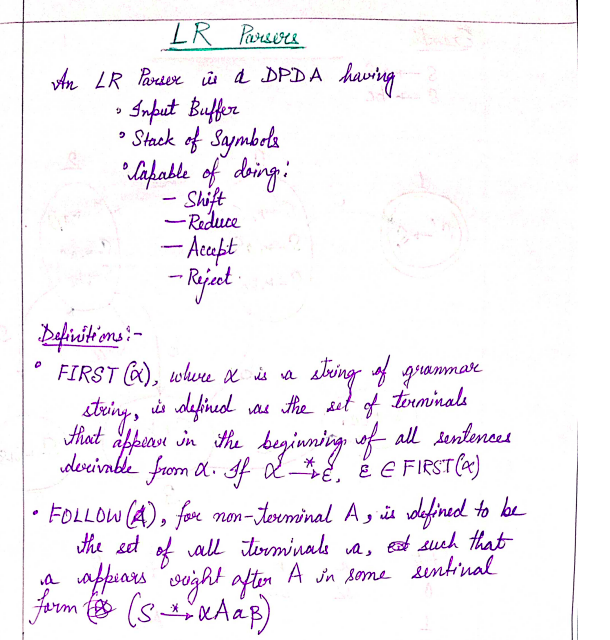 LR Parsers
An LR Parser is a DPDA having
◦ Input Buffer
◦ Stack of Saymbols
◦ Capable of doing:
– Shift
– Reduce
– Accept
– Reject.
Definitions:-
◦ FIRST(α), where α is a string of grammar
string, is defined as the set of terminals
that appear in the beginning of all sentences
derivable from α. If α →* ε, ε ∈ FIRST(α)
• FOLLOW(A), for non-terminal A, is defined to be
the set of all terminals a, such that
a appears right after A in some sentinal
form (S →* αAaβ)